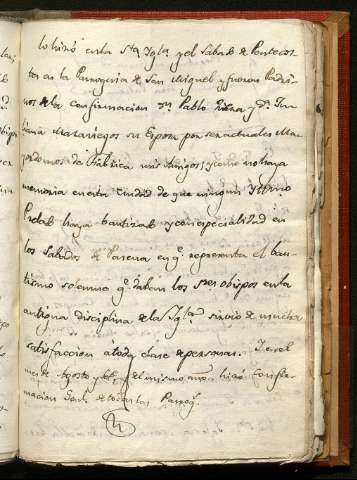 lo hizo en la Sta Igla y el Sabado de Pentecos
tes en la Parroquia de San Miguel y fueron Padri
nos de la confirmacion Dn Pablo y Da
su Esposa por ser actuales Ma
yordomos de Fabrica mis Amigos, y como no haya
memoria en esta Ciudad de que ningun Yttmo
Prelado haya bautizado y con especialidad en
los Sabados de Pascua en qe. representa el bau
tismo solemne qe. los Sres obispos en la
antigua disciplina de la Iga sirvio de mucha
satisfaccion á toda clase de personas. Y en el
mes de Agosto del mismo año hizo Confir
macion Genl. de todas las Parroqs.